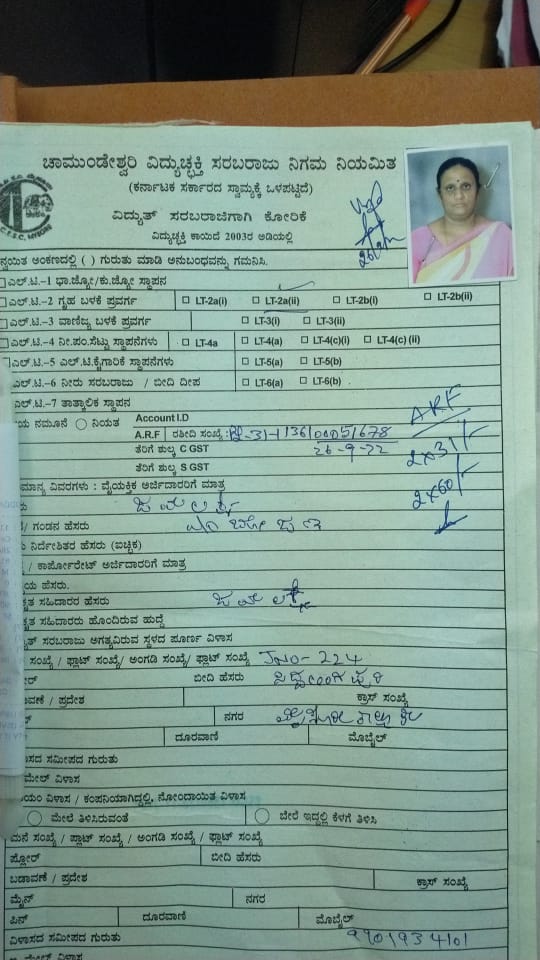 ಚಾಮುಂಡೇಶ್ವರಿ ವಿದ್ಯುಚ್ಛಕ್ತಿ ಸರಬರಾಜು ನಿಗಮ ನಿಯಮಿತ
(ಕರ್ನಾಟಕ ಸರ್ಕಾರದ ಸ್ವಾಮ್ಯಕ್ಕೆ ಒಳಪಟ್ಟಿದೆ)
C.E.S.C, MYSORE
ವಿದ್ಯುತ್ ಸರಬರಾಜಿಗಾಗಿ ಕೋರಿಕೆ
ವಿದ್ಯುಚ್ಛಕ್ತಿ ಕಾಯಿದೆ 2003ರ ಅಡಿಯಲ್ಲಿ
ನ್ವಯಿತ ಅಂಕಣದಲ್ಲಿ ( ) ಗುರುತು ಮಾಡಿ ಅನುಬಂಧವನ್ನು ಗಮನಿಸಿ.
ಎಲ್.ಟಿ-1 ಭಾ.ಜ್ಯೋ/ಕು.ಜ್ಯೋ ಸ್ಥಾಪನ
ಎಲ್.ಟಿ-2 ಗೃಹ ಬಳಕೆ ಪ್ರವರ್ಗ LT-2a(i) LT-2a(ii) LT-2b(i) LT-2b(ii)
ಎಲ್.ಟಿ-3 ವಾಣಿಜ್ಯ ಬಳಕೆ ಪ್ರವರ್ಗ LT-3(i) LT-3(ii)
ಎಲ್.ಟಿ-4 ನೀ.ಪಂ.ಸೆಟ್ಟು ಸ್ಥಾಪನೆಗಳು LT-4a LT-4(a) LT-4(c)(i) LT-4(c) (ii)
ಎಲ್.ಟಿ-5 ಎಲ್.ಟಿ.ಕೈಗಾರಿಕೆ ಸ್ಥಾಪನೆಗಳು LT-5(a) LT-5(b)
ಎಲ್.ಟಿ-6 ನೀರು ಸರಬರಾಜು / ಬೀದಿ ದೀಪ LT-6(a) LT-6(b)
ಎಲ್.ಟಿ-7 ತಾತ್ಕಾಲಿಕ ಸ್ಥಾಪನ
ಯ ನಮೂನೆ ನಿಯತ Account I.D
A.R.F ರಶೀದಿ ಸಂಖ್ಯೆ :
ತೆರಿಗೆ ಶುಲ್ಕ C GST 26-9-22
ತೆರಿಗೆ ಶುಲ್ಕ S GST
A.R.F
2x31/-
2x60/-
ಮಾನ್ಯ ವಿವರಗಳು : ವೈಯಕ್ತಿಕ ಅರ್ಜಿದಾರರಿಗೆ ಮಾತ್ರ
/ ಗಂಡನ ಹೆಸರು
ನಿರ್ದೇಶಿತರ ಹೆಸರು (ಐಚ್ಛಿಕ)
/ ಕಾರ್ಪೋರೇಟ್ ಅರ್ಜಿದಾರರಿಗೆ ಮಾತ್ರ
ಯ ಹೆಸರು.
ಕೃತ ಸಹಿದಾರರ ಹೆಸರು
ಕೃತ ಸಹಿದಾರರು ಹೊಂದಿರುವ ಹುದ್ದೆ
ತ್ ಸರಬರಾಜು ಅಗತ್ಯವಿರುವ ಸ್ಥಳದ ಪೂರ್ಣ ವಿಳಾಸ
ಸಂಖ್ಯೆ / ಫ್ಲಾಟ್ ಸಂಖ್ಯೆ/ ಅಂಗಡಿ ಸಂಖ್ಯೆ/ ಫ್ಲಾಟ್ ಸಂಖ್ಯೆ
ಬೀದಿ ಹೆಸರು
ಾವಣೆ / ಪ್ರದೇಶ ಕ್ರಾಸ್ ಸಂಖ್ಯೆ
ನಗರ
ದೂರವಾಣಿ ಮೊಬೈಲ್
ಾಸದ ಸಮೀಪದ ಗುರುತು
ಮೇಲ್ ವಿಳಾಸ
ಯಂ ವಿಳಾಸ / ಕಂಪನಿಯಾಗಿದ್ದಲ್ಲಿ, ನೋಂದಾಯಿತ ವಿಳಾಸ
ಮೇಲೆ ತಿಳಿಸಿರುವಂತೆ ಬೇರೆ ಇದ್ದಲ್ಲಿ ಕೆಳಗೆ ತಿಳಿಸಿ
ಮನೆ ಸಂಖ್ಯೆ / ಪ್ಲಾಟ್ ಸಂಖ್ಯೆ / ಅಂಗಡಿ ಸಂಖ್ಯೆ / ಫ್ಲಾಟ್ ಸಂಖ್ಯೆ
ಫ್ಲೋರ್ ಬೀದಿ ಹೆಸರು
ಬಡಾವಣೆ / ಪ್ರದೇಶ ಕ್ರಾಸ್ ಸಂಖ್ಯೆ
ಮೈನ್ ನಗರ
ಪಿನ್ ದೂರವಾಣಿ ಮೊಬೈಲ್
ವಿಳಾಸದ ಸಮೀಪದ ಗುರುತು 9901934101
ಇ-ಮೇಲ್ ವಿಳಾಸ